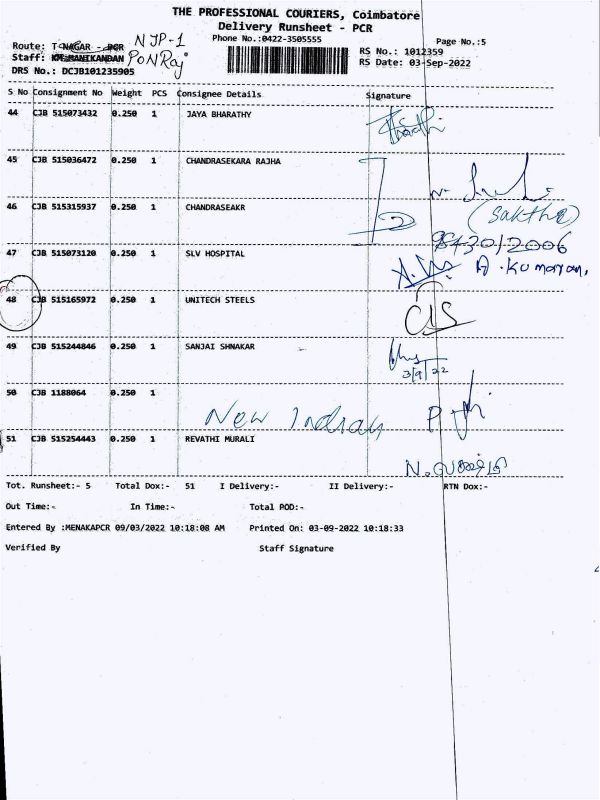 THE PROFESSIONAL COURIERS, Coimbatore
Delivery Runsheet - PCR
Phone No.:0422-3505555
Page No.:5
Route: T-NAGAR - PCR NJP-1
Staff: KM.MANIKANDAN PONRaj
RS No.: 1012359
RS Date: 03-Sep-2022
DRS No.: DCJB101235905
S No Consignment No Weight PCS Consignee Details Signature
44 CJB 515073432 0.250 1 JAYA BHARATHY
45 CJB 515036472 0.250 1 CHANDRASEKARA RAJHA
46 CJB 515315937 0.250 1 CHANDRASEAKR
47 CJB 515073120 0.250 1 SLV HOSPITAL A.Kumaran,
48 CJB 515165972 0.250 1 UNITECH STEELS
49 CJB 515244846 0.250 1 SANJAI SHNAKAR
3/9/22
50 CJB 1188064 0.250 1
New Indian
51 CJB 515254443 0.250 1 REVATHI MURALI
Tot. Runsheet:- 5 Total Dox:- 51 I Delivery:- II Delivery:- RTN Dox:-
Out Time:- In Time:- Total POD:-
Entered By :MENAKAPCR 09/03/2022 10:18:08 AM Printed On: 03-09-2022 10:18:33
Verified By Staff Signature